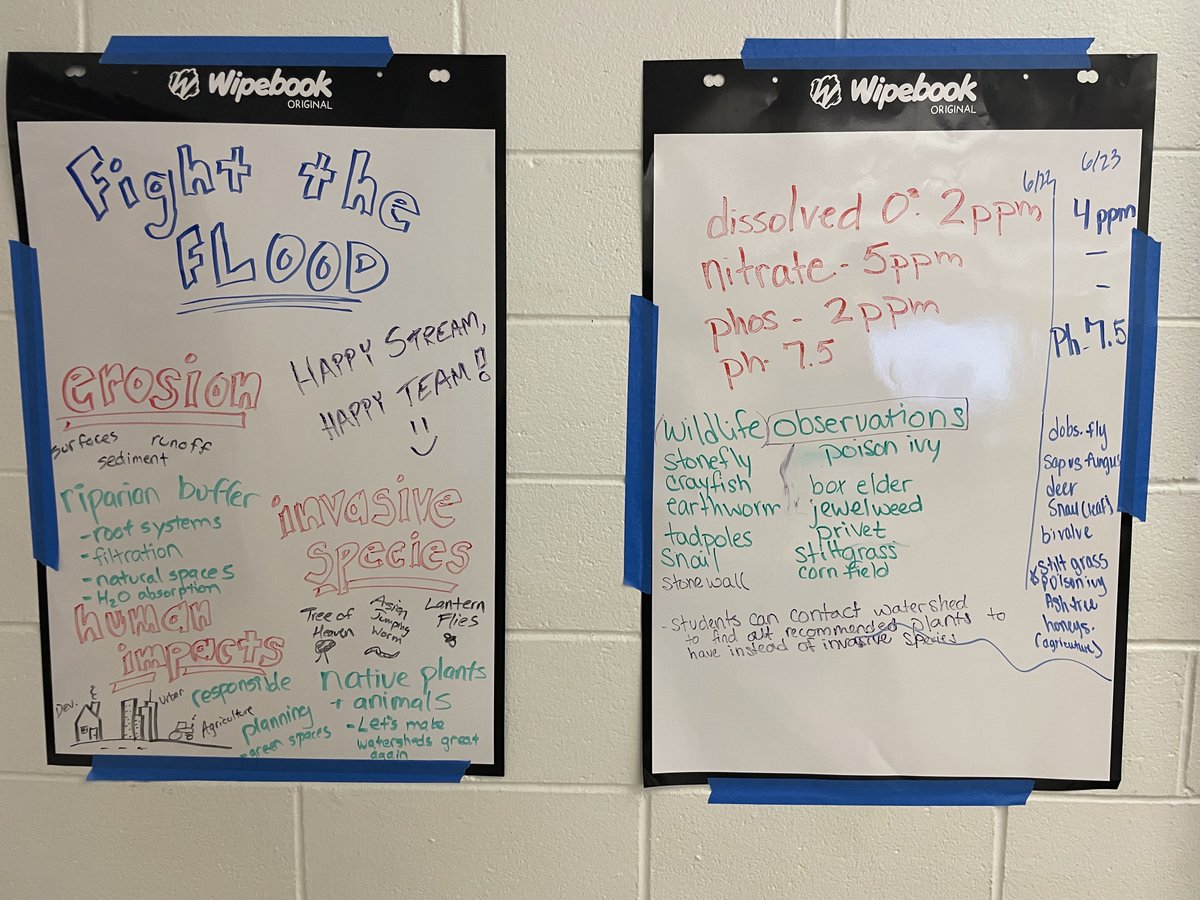 Wipebook
ORIGINAL
Fight the
FLOOD
HAPPY STREAM,
HAPPY TEAM!
erosion
surfeces runoff
sediment
riparian buffer
- root systems
- filtration
- natural spaces
- H2O absorption
invasive
species
Tree of
Heaven
Asian
Jumping
Worm
Lantern
Flies
human
impacts
Dev.
urban
Agriculture
responsible
planning
- green spaces
native plants
+ animals
- Let's make
watersheds great
again
Wipebook
ORIGINAL
6/22
6/23
dissolved O2: 2ppm
nitrate - 5ppm
phos - 2ppm
ph - 7.5
4ppm
-
-
Ph - 7.5
wildlife observations
stonefly
crayfish
earthworm
tadpoles
snail
stonewall
poison ivy
box elder
jewelweed
privet
stiltgrass
corn field
- students can contact watershed
to find out recommended plants to
have instead of invasive species
dobs. fly
fungus
deer
Snail (leaf)
bivalve
stilt grass
poison ivy
Ash tree
honeys.
(agriculture)